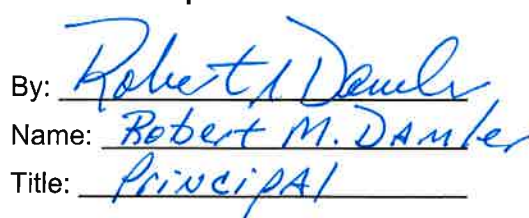 By: Robert M Damler
Name: Robert M. DAMler
Title: PrinciPAl